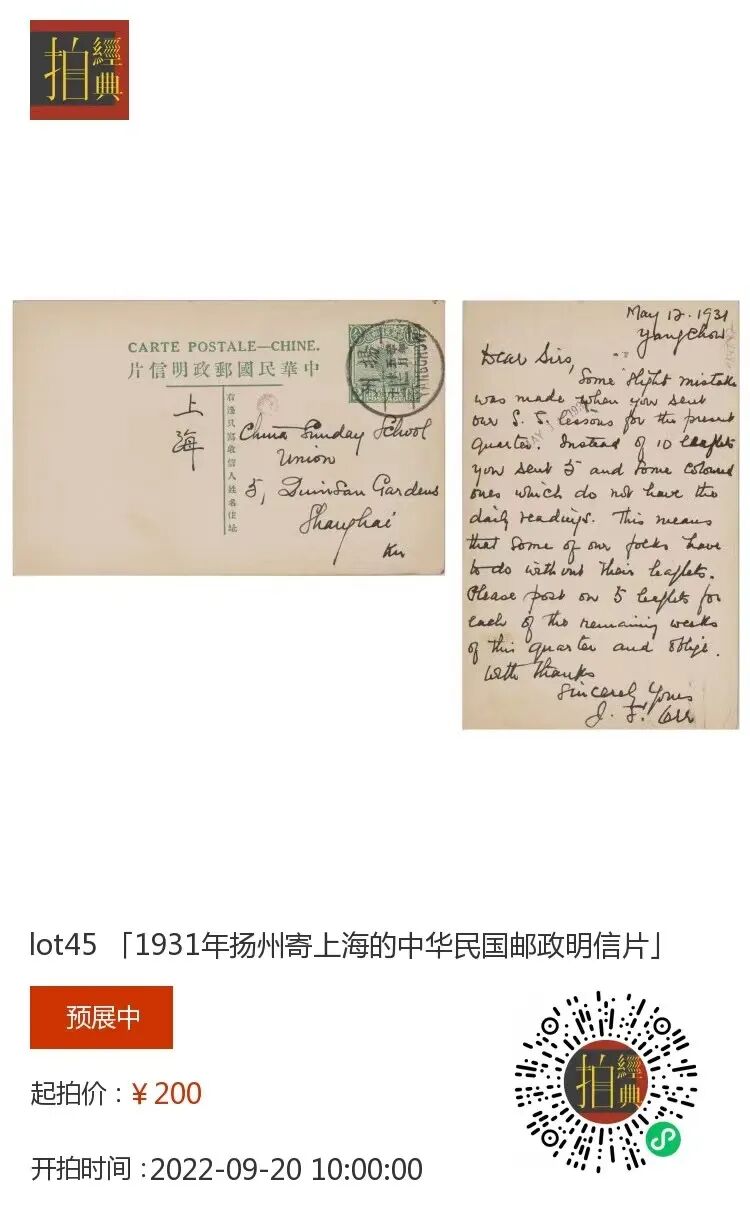 拍
經典
CARTE POSTALE—CHINE.
片信明政郵國民華中
上海
右邊只寫收信人姓名住址
揚州
YANGCHOW
China Sunday School
Union
5, Quinsan Gardens
Shanghai
May 12. 1931
Yangchow
Dear Sirs,
Some slight mistake
was made when you sent
our S. S. lessons for the present
quarter. Instead of 10 leaflets
you sent 5 and some coloured
ones which do not have the
daily readings. This means
that some of our folks have
to do without their leaflets.
Please post on 5 leaflets for
each of the remaining weeks
of this quarter and oblige.
With thanks
Sincerely Yours
lot45 「1931年扬州寄上海的中华民国邮政明信片」
预展中
起拍价：¥ 200
开拍时间：2022-09-20 10:00:00
拍
經典